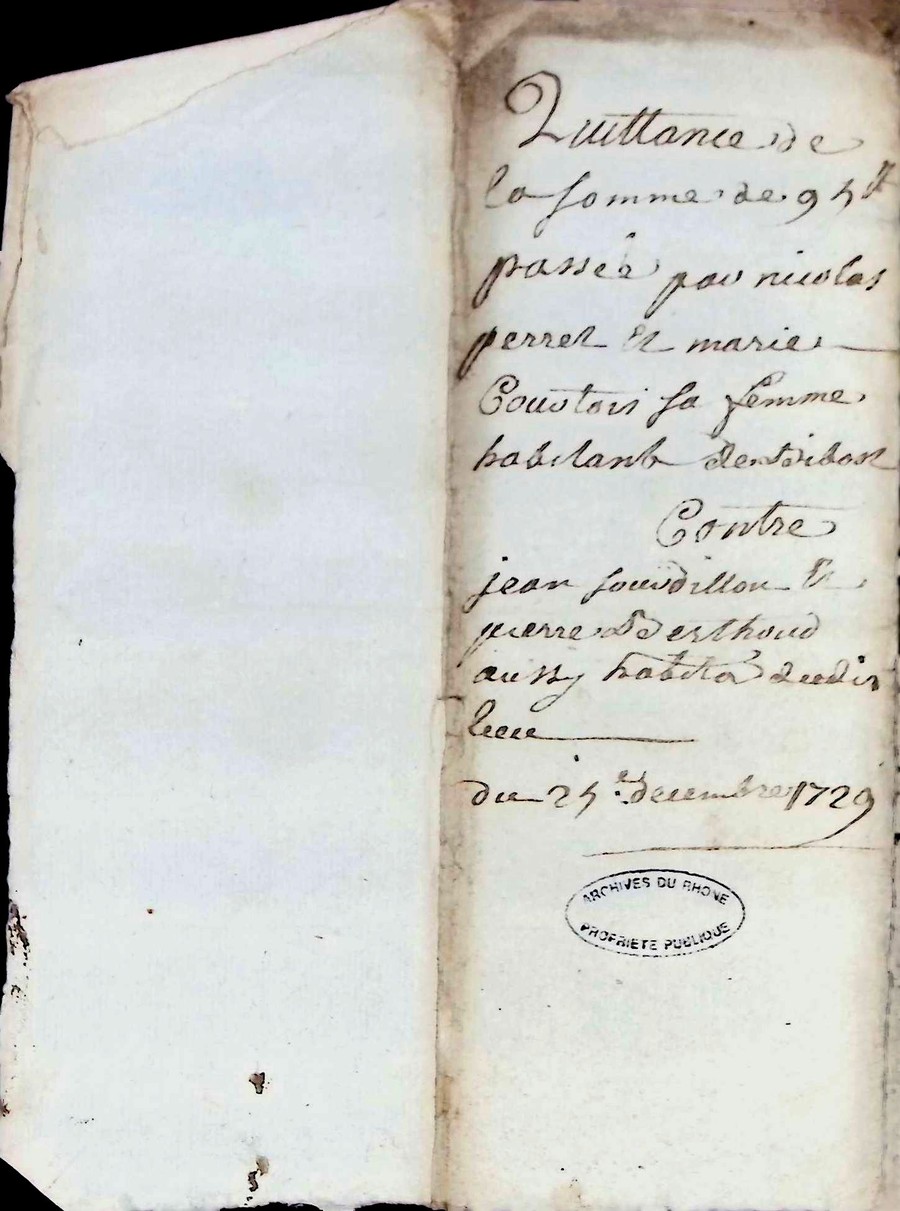 Quittance de
la somme de 95 ll
passée par nicolas
perret et marie
Courtois sa femme
habitant
Contre
jean sourdillon et
pierre Berthoud
aussy habitā dudit
lieu
du 25e decembre 1729
ARCHIVES DU RHONE
PROPRIETE PUBLIQUE